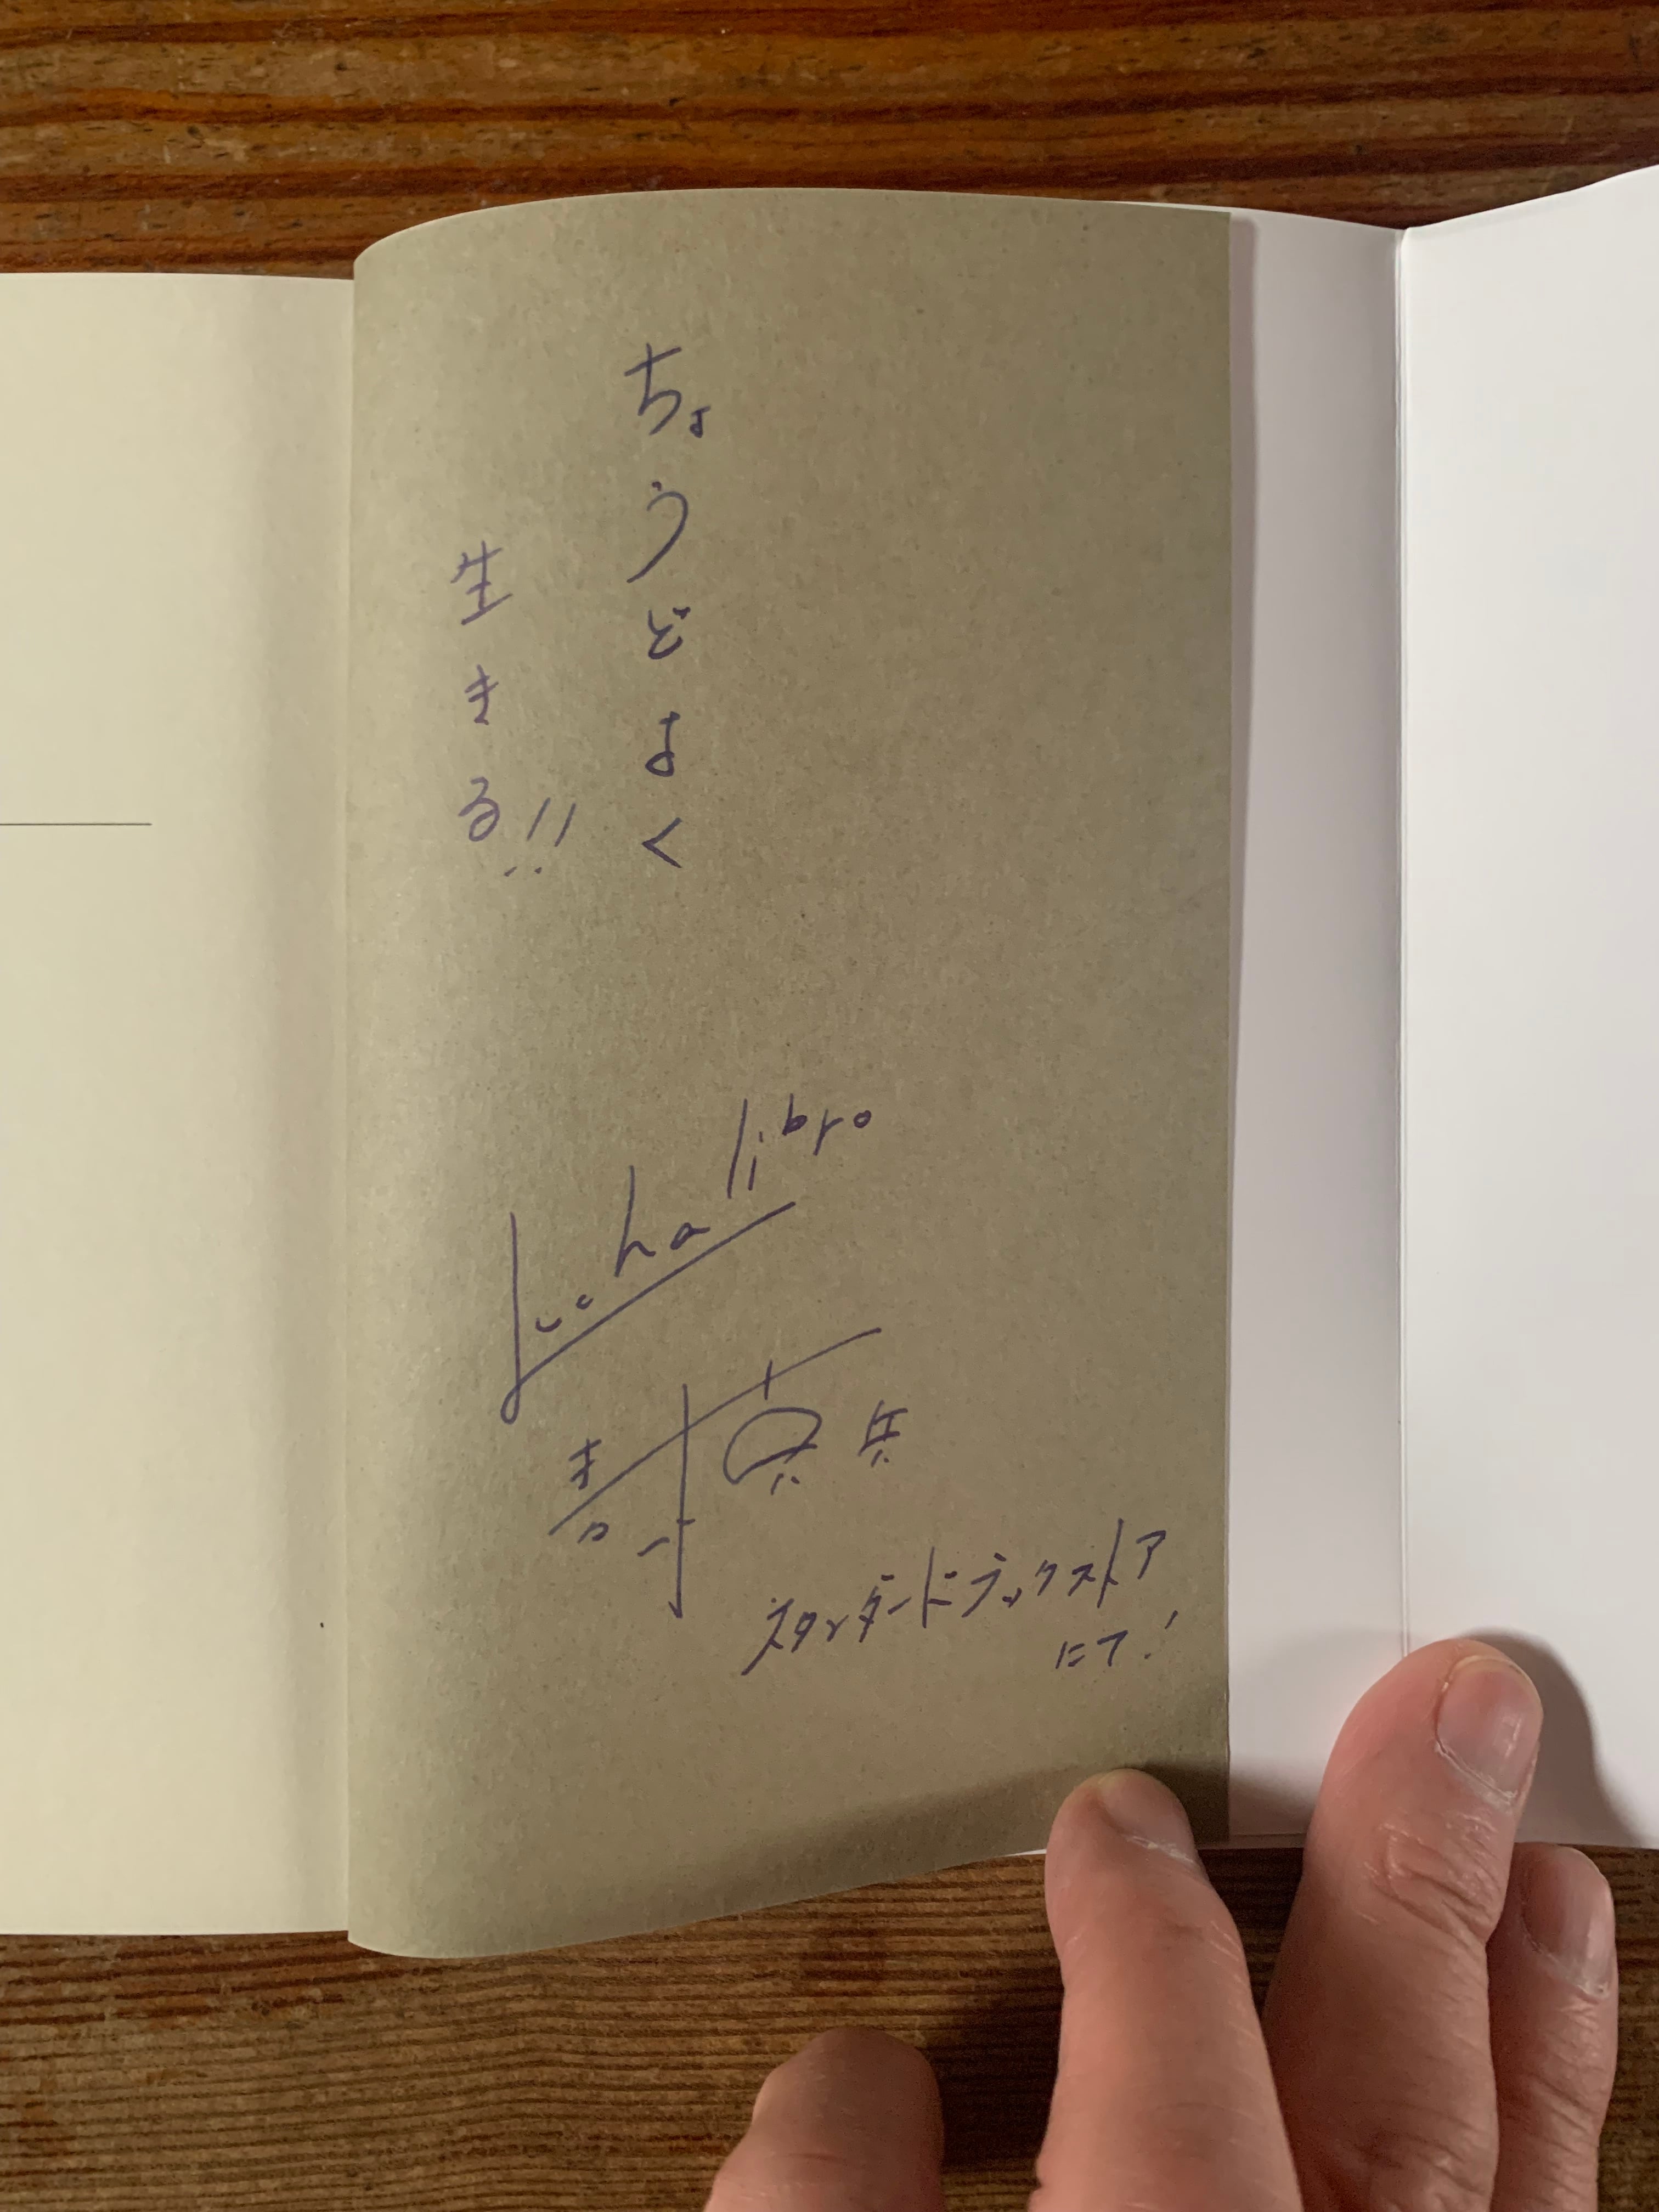 ちょうどよく
生きる!!
Lucha libro
青木真兵
スタンダードブックストア
にて!